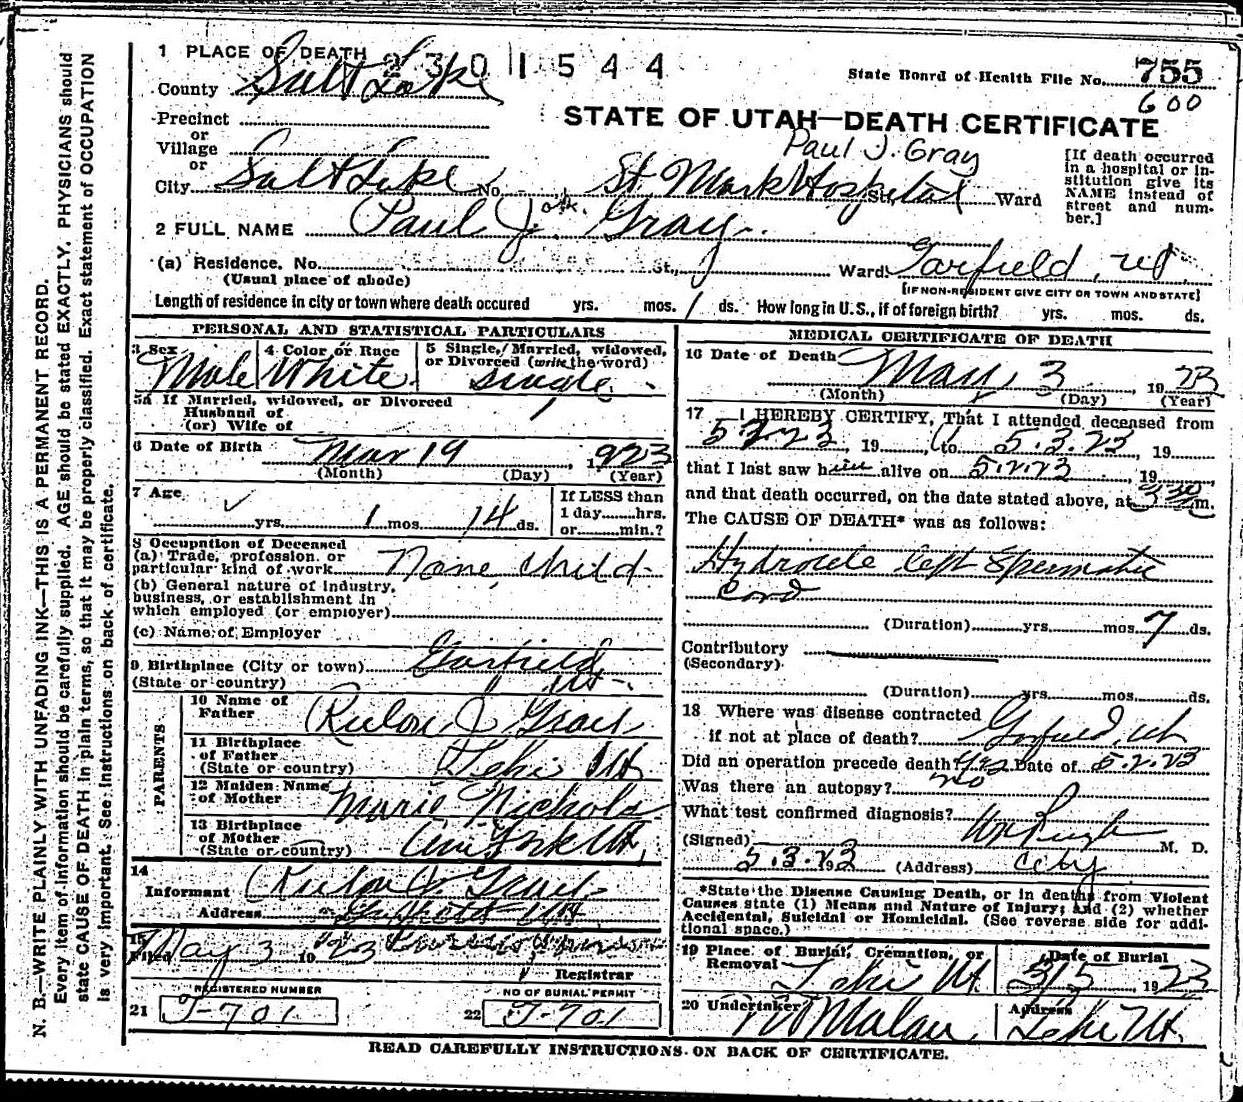 N. B.—WRITE PLAINLY WITH UNFADING INK—THIS IS A PERMANENT RECORD.
Every item of information should be carefully supplied. AGE should be stated EXACTLY. PHYSICIANS should
state CAUSE OF DEATH in plain terms, so that it may be properly classified. Exact statement of OCCUPATION
is very important. See instructions on back of certificate.
1 PLACE OF DEATH 2301544
State Board of Health File No. 755
600
County Salt Lake
STATE OF UTAH—DEATH CERTIFICATE
Precinct
or
Village
or
Paul J. Gray
City Salt Lake No. St. Mark Hospital St. Ward
[If death occurred
in a hospital or in-
stitution give its
NAME instead of
street and num-
ber.]
2 FULL NAME Paul J. Gray
(a) Residence. No. St., Ward. Garfield, Ut
(Usual place of abode)
[IF NON-RESIDENT GIVE CITY OR TOWN AND STATE]
Length of residence in city or town where death occured yrs. mos. 1 ds. How long in U. S., if of foreign birth? yrs. mos. ds.
PERSONAL AND STATISTICAL PARTICULARS
3 Sex Male
4 Color or Race White
5 Single, Married, widowed,
or Divorced (write the word)
Single
5a If Married, widowed, or Divorced
Husband of
(or) Wife of
6 Date of Birth Mar 19, 1923
(Month) (Day) (Year)
7 Age
yrs. 1 mos. 14 ds.
If LESS than
1 day hrs.
or min.?
8 Occupation of Deceased
(a) Trade, profession or
particular kind of work None, Child
(b) General nature of industry,
business, or establishment in
which employed (or employer)
(c) Name of Employer
9 Birthplace (City or town) Garfield
(State or country) Ut.
PARENTS
10 Name of
Father Rulon J Gray
11 Birthplace
of Father
(State or country) Lehi Ut
12 Maiden Name
of Mother Marie Nichols
13 Birthplace
of Mother
(State or country) Am Fork Ut.
14
Informant Rulon J. Gray
Address Ut
15
Filed May 3 1923
Registrar
REGISTERED NUMBER
21 J-701
NO OF BURIAL PERMIT
22 J-701
MEDICAL CERTIFICATE OF DEATH
16 Date of Death May 3, 1923
(Month) (Day) (Year)
17 I HEREBY CERTIFY, That I attended deceased from
5 2 23, 19 to 5.3.23, 19
that I last saw him alive on 5.2.23, 19
and that death occurred, on the date stated above, at 3 30 m.
The CAUSE OF DEATH* was as follows:
Hydrocele left Spermatic
Cord
(Duration) yrs. mos. 7 ds.
Contributory
(Secondary)
(Duration) yrs. mos. ds.
18 Where was disease contracted
if not at place of death? Garfield, Ut
Did an operation precede death? Yes Date of 5.2.23
Was there an autopsy? no
What test confirmed diagnosis?
(Signed) M. D.
5.3.1923 (Address) City
*State the Disease Causing Death, or in deaths from Violent
Causes state (1) Means and Nature of Injury; and (2) whether
Accidental, Suicidal or Homicidal. (See reverse side for addi-
tional space.)
19 Place of Burial, Cremation, or
Removal Lehi Ut.
Date of Burial
3/5 1923
20 Undertaker Malan
Address
Lehi Ut.
READ CAREFULLY INSTRUCTIONS ON BACK OF CERTIFICATE.